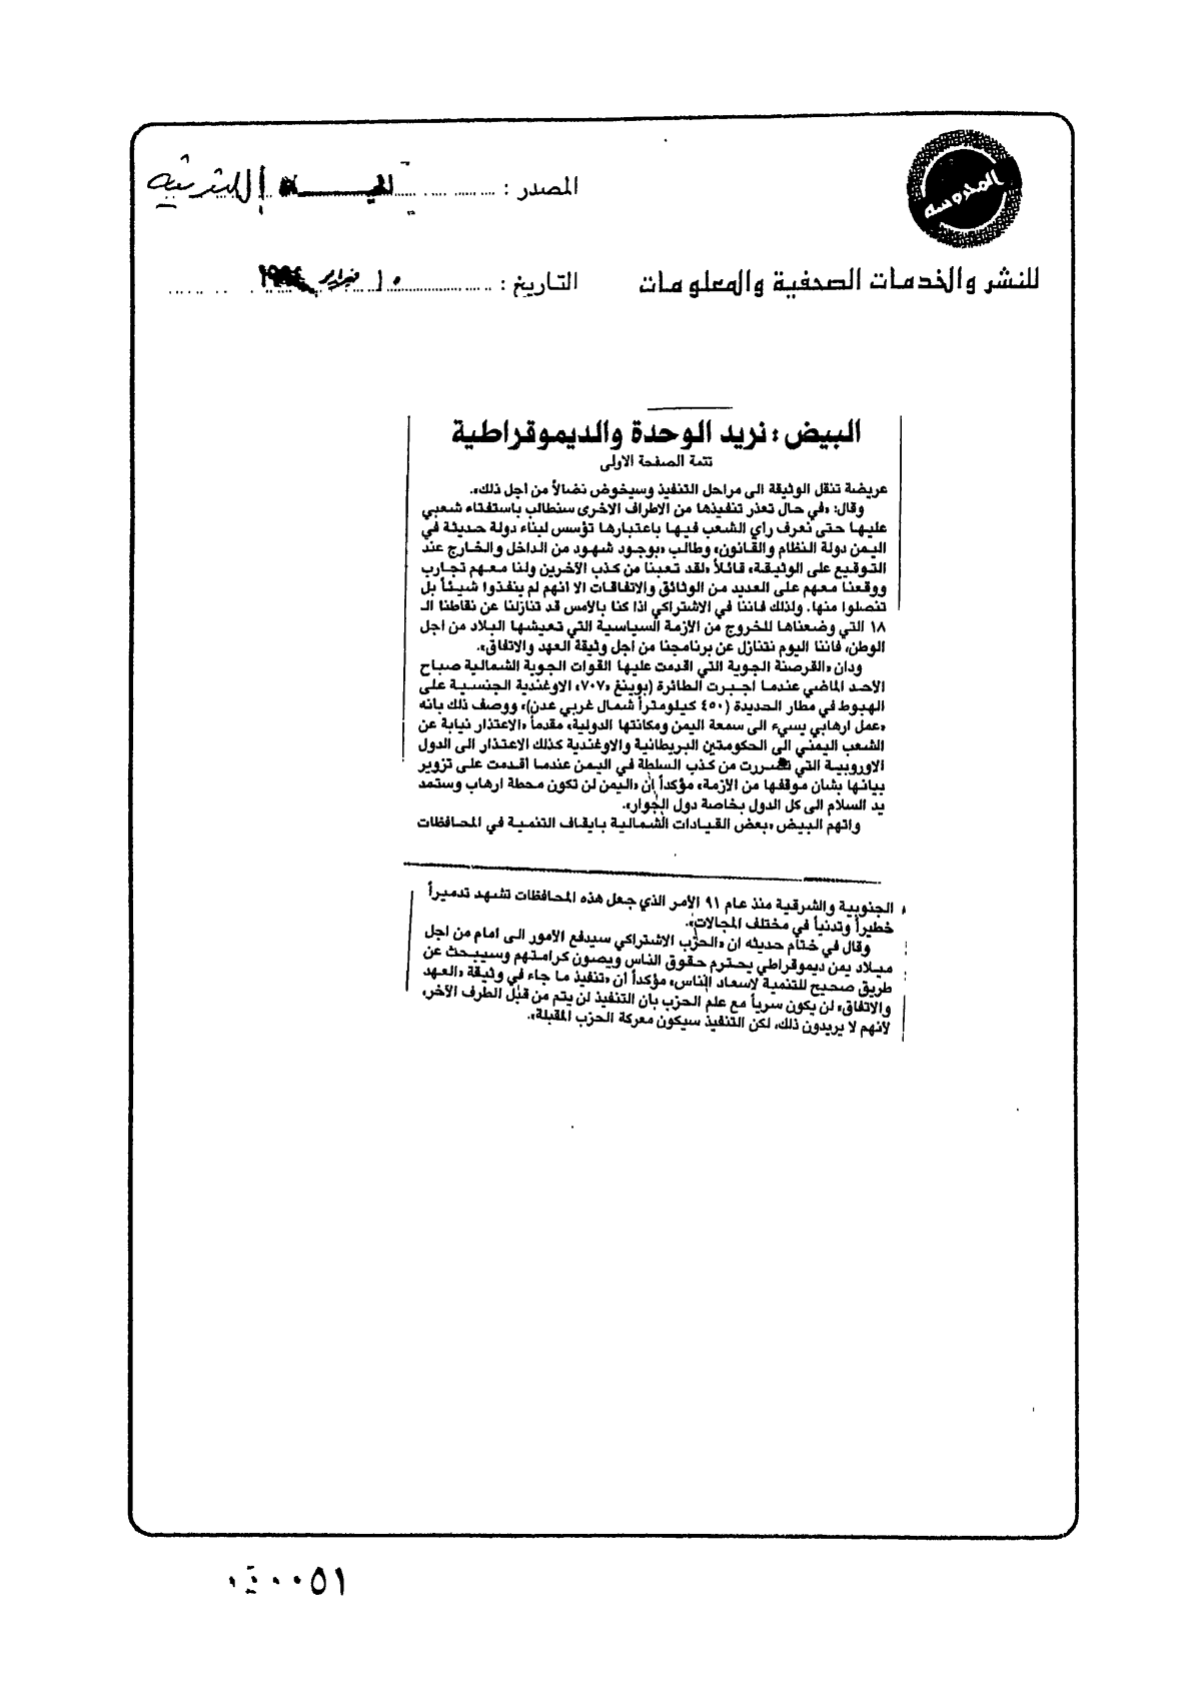 المحروسه
المصدر : الحياة اللندنية
للنشر والخدمات الصحفية والمعلومات
التاريخ : ١٠ فبراير ١٩٩٤
البيض : نريد الوحدة والديموقراطية
تتمة الصفحة الاولى
عريضة تنقل الوثيقة الى مراحل التنفيذ وسيخوض نضالاً من أجل ذلك».
وقال: «في حال تعذر تنفيذها من الاطراف الاخرى سنطالب باستفتاء شعبي
عليها حتى نعرف رأي الشعب فيها باعتبارها تؤسس لبناء دولة حديثة في
اليمن دولة النظام والقانون» وطالب «بوجود شهود من الداخل والخارج عند
التوقيع على الوثيقة» قائلاً «لقد تعبنا من كذب الآخرين ولنا معهم تجارب
ووقعنا معهم على العديد من الوثائق والاتفاقات الا انهم لم ينفذوا شيئاً بل
تنصلوا منها. ولذلك فاننا في الاشتراكي اذا كنا بالأمس قد تنازلنا عن نقاطنا الـ
١٨ التي وضعناها للخروج من الأزمة السياسية التي تعيشها البلاد من اجل
الوطن، فاننا اليوم نتنازل عن برنامجنا من اجل وثيقة العهد والاتفاق».
ودان «القرصنة الجوية التي اقدمت عليها القوات الجوية الشمالية صباح
الأحد الماضي عندما اجبرت الطائرة (بوينغ «٧٠٧» الاوغندية الجنسية على
الهبوط في مطار الحديدة (٤٥٠ كيلومتراً شمال غربي عدن)» ووصف ذلك بانه
«عمل ارهابي يسيء الى سمعة اليمن ومكانتها الدولية» مقدماً «الاعتذار نيابة عن
الشعب اليمني الى الحكومتين البريطانية والاوغندية كذلك الاعتذار الى الدول
الاوروبية التي تضررت من كذب السلطة في اليمن عندما أقدمت على تزوير
بيانها بشأن موقفها من الأزمة» مؤكداً إن «اليمن لن تكون محطة ارهاب وستمد
يد السلام الى كل الدول بخاصة دول الجوار».
واتهم البيض «بعض القيادات الشمالية بايقاف التنمية في المحافظات
الجنوبية والشرقية منذ عام ٩١ الأمر الذي جعل هذه المحافظات تشهد تدميراً
خطيراً وتدنياً في مختلف المجالات».
وقال في ختام حديثه ان «الحزب الاشتراكي سيدفع الأمور الى امام من اجل
ميلاد يمن ديموقراطي يحترم حقوق الناس ويصون كرامتهم وسيبحث عن
طريق صحيح للتنمية لاسعاد الناس» مؤكداً ان «تنفيذ ما جاء في وثيقة «العهد
والاتفاق» لن يكون سرياً مع علم الحزب بأن التنفيذ لن يتم من قبل الطرف الآخر،
لأنهم لا يريدون ذلك، لكن التنفيذ سيكون معركة الحزب المقبلة».